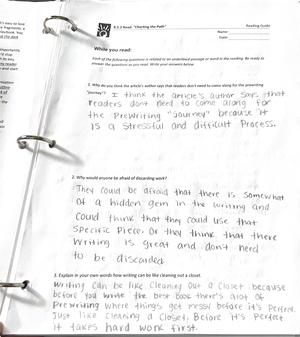 8.2.2 Read: "Charting the Path"
Reading Guide
Name:
Date:
While you read:
Each of the following questions is related to an underlined passage or word in the reading. Be ready to
answer the question as you read. Write your answers below.
1. Why do you think the article's author says that readers don't need to come along for the prewriting
"journey"? I think the article's author says that
readers dont need to come along for
the PreWriting "journey" because it
is a Stressful and difficult Process.
2. Why would anyone be afraid of discarding work?
They could be afraid that there is somewhat
of a hidden gem in the writing and
could think that they could use that
Specific Piece. Or they think that there
writing is great and dont need
to be discarded
3. Explain in your own words how writing can be like cleaning out a closet.
Writing can be like Cleaning out a Closet because
before you write the best book there's alot of
Prewriting where things get messy before it's Perfect.
Just like cleaning a Closet, Before it's Perfect
it takes hard work first.